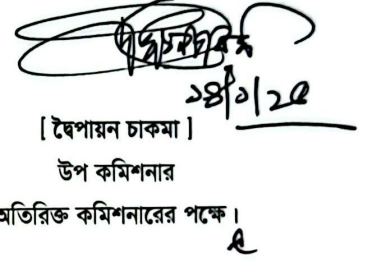 [ দ্বৈপায়ন চাকমা ]
উপ কমিশনার
অতিরিক্ত কমিশনারের পক্ষে।